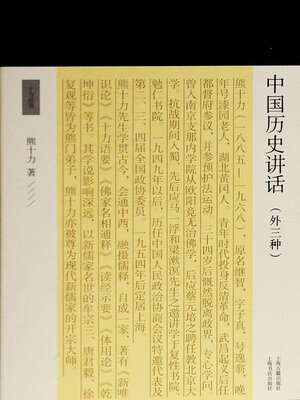 中国历史讲话
（外三种）
上海古籍出版社
上海书店出版社
熊十力（一八八五—一九六八），原名继智，字子真，号逸翁，晚
年号漆园老人，湖北黄冈人。青年时代投身反清革命，武昌起义后任
都督府参议，并参预护法运动。三十四岁后慨然脱离政界，专心学问。
曾入南京支那内学院从欧阳竟无治佛学，后应蔡元培之聘任教北京大
学。抗战期间入蜀，先后应马一浮和梁漱溟先生之邀讲学于复性书院、
勉仁书院。一九四九年以后，历任中国人民政治协商会议特邀代表及
第二、三、四届全国政协委员。一九五四年后定居上海。
熊十力先生学贯古今，会通中西，融摄儒释，自成一家，著有《新唯
识论》《十力语要》《佛家名相通释》《读经示要》《体用论》《乾
坤衍》等书。其学说影响深远，以新儒家名世的牟宗三、唐君毅、徐
复观等皆为熊门弟子，熊十力亦被尊为现代新儒家的开宗大师
十力丛书
熊十力 著